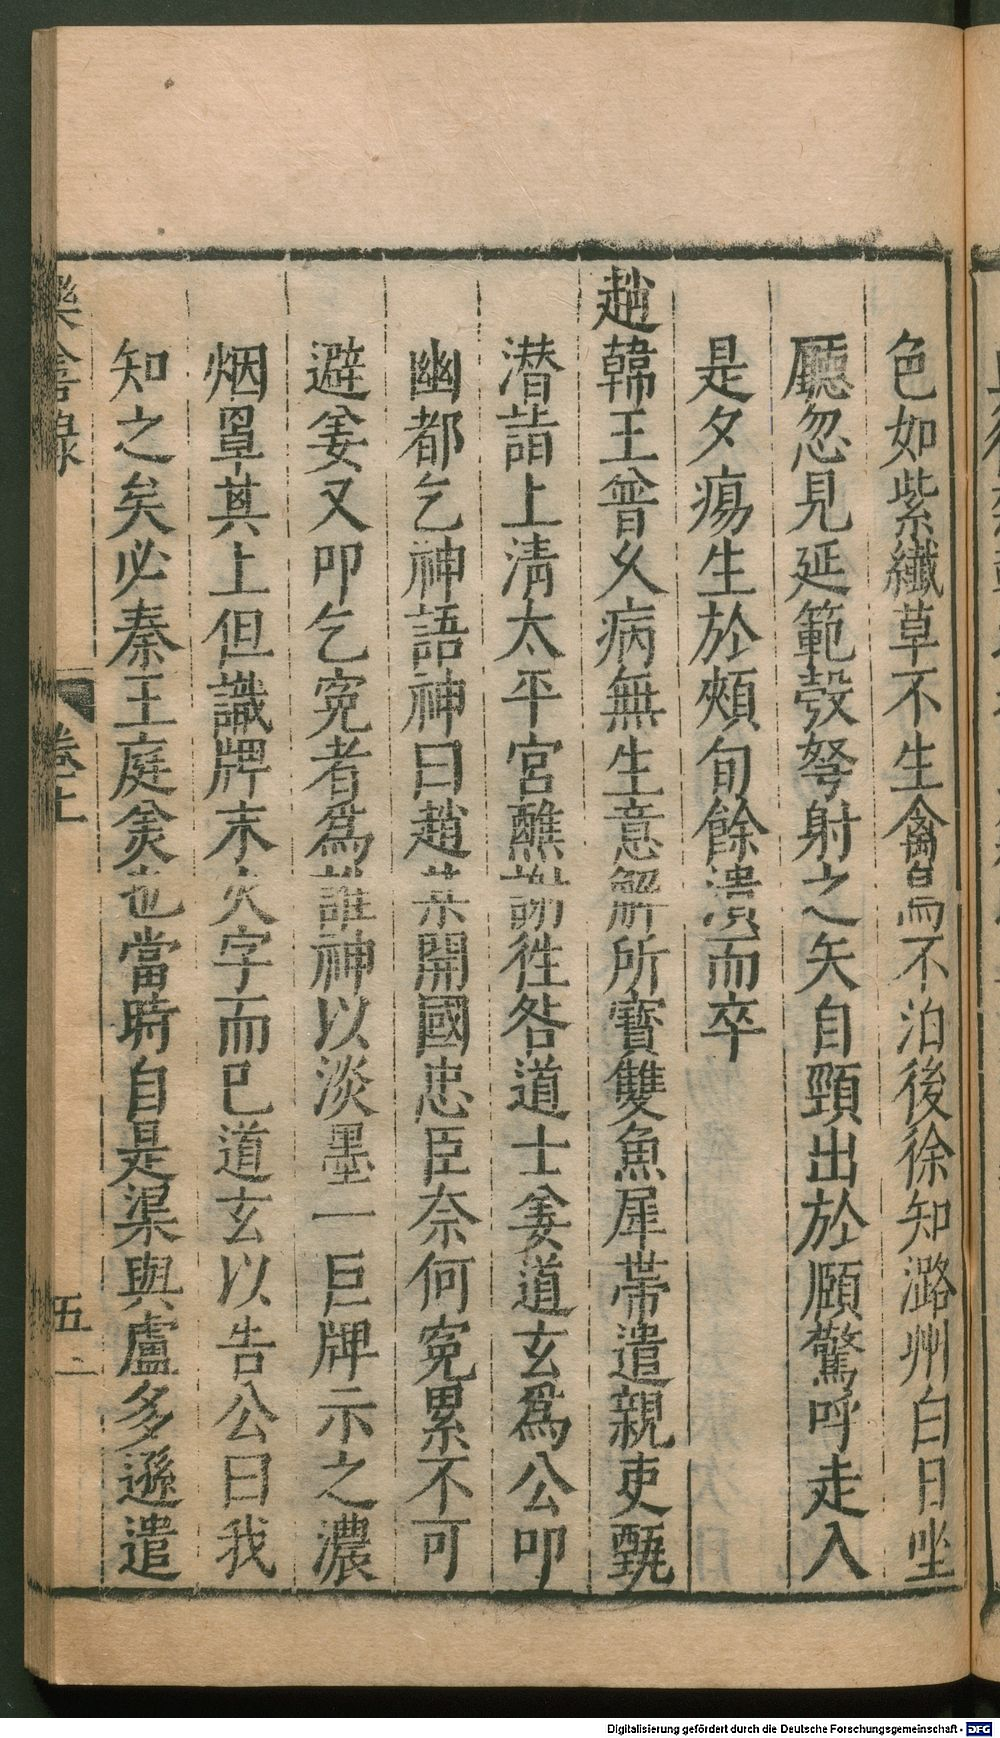 色如紫纖草不生禽鳥不泊後徐知潞州白日坐
廳忽見延範彀弩射之矢自頸出於頤驚呼走入
是夕瘍生於頰旬餘潰而卒
趙韓王曾乆病無生意解所寶雙魚犀帶遣親吏甄
潜詣上清太平宮醮謝徃咎道士姜道玄爲公叩
幽都乞神語神曰趙某開國忠臣奈何寃累不可
避姜又叩乞寃者爲誰神以淡墨一巨牌示之濃
烟罩其上但識牌末火字而已道玄以告公曰我
知之矣必秦王庭羙也當時自是渠與盧多遜遣
樂善録
卷上
五二
Digitalisierung gefördert durch die Deutsche Forschungsgemeinschaft - DFG